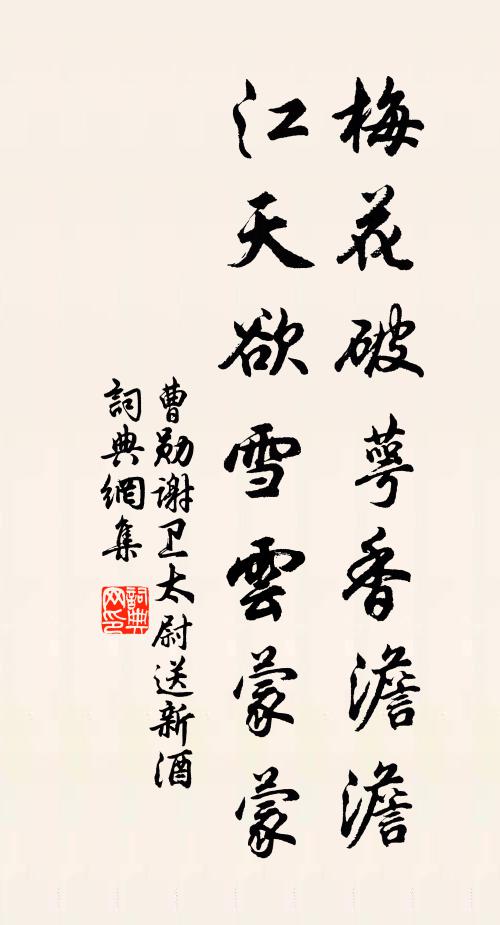 梅花破萼香澹澹
江天欲雪雲蒙蒙
曹勋谢卫太尉送新酒
詞典網集
詞典网印